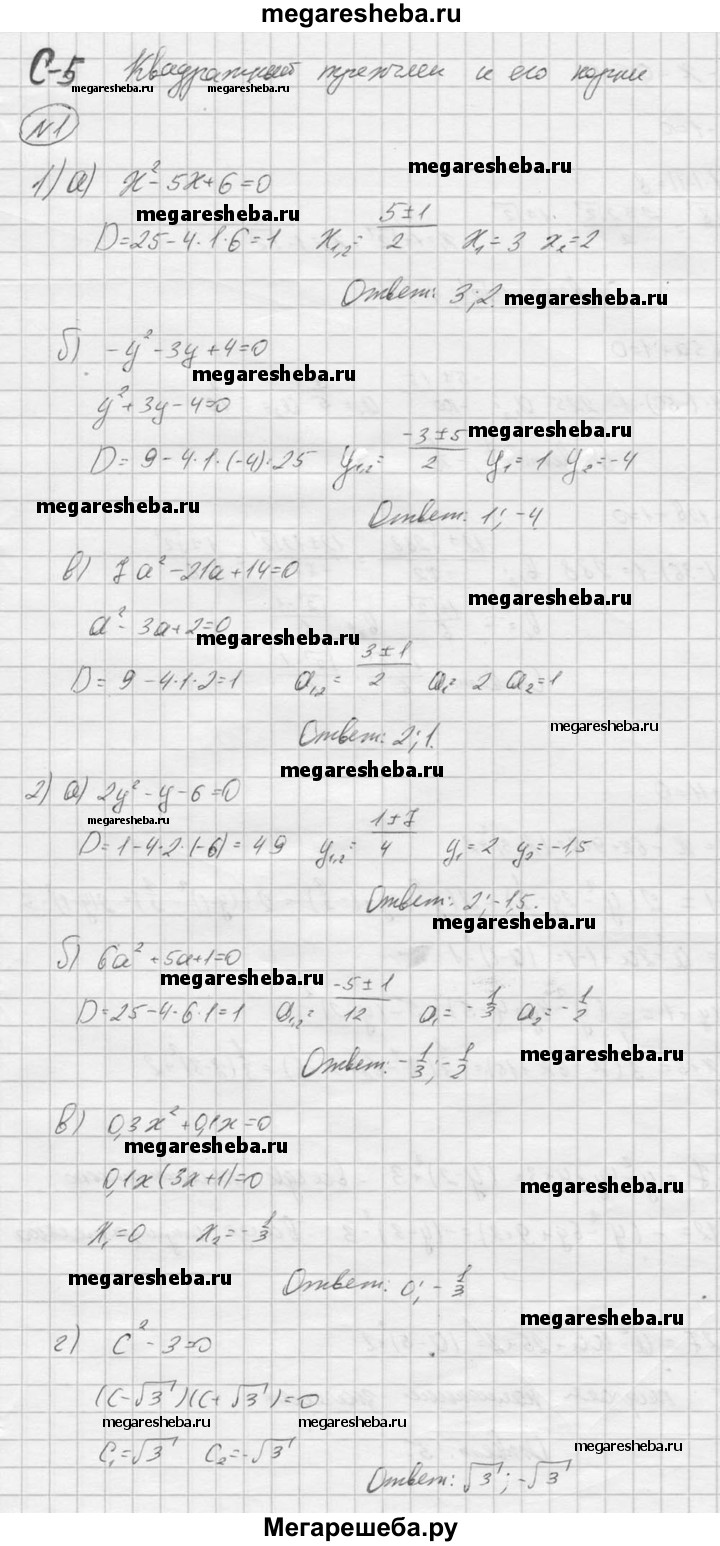 megaresheba.ru
С-5 Квадратный трехчлен и его корни
megaresheba.ru megaresheba.ru
№1
megaresheba.ru
1) а) x² - 5x + 6 = 0
megaresheba.ru
D = 25 - 4·1·6 = 1 x₁,₂ = (5 ± 1)/2 x₁ = 3 x₂ = 2
Ответ: 3; 2. megaresheba.ru
б) -y² - 3y + 4 = 0
megaresheba.ru
y² + 3y - 4 = 0
megaresheba.ru
D = 9 - 4·1·(-4)·25 y₁,₂ = (-3 ± 5)/2 y₁ = 1 y₂ = -4
megaresheba.ru
Ответ: 1; -4.
в) 7a² - 21a + 14 = 0
megaresheba.ru
a² - 3a + 2 = 0
megaresheba.ru
D = 9 - 4·1·2 = 1 a₁,₂ = (3 ± 1)/2 a₁ = 2 a₂ = 1
megaresheba.ru
Ответ: 2; 1.
megaresheba.ru
2) а) 2y² - y - 6 = 0
megaresheba.ru
D = 1 - 4·2·(-6) = 49 y₁,₂ = (1 ± 7)/4 y₁ = 2 y₂ = -1,5
Ответ: 2; -1,5.
megaresheba.ru
б) 6a² + 5a + 1 = 0
megaresheba.ru
D = 25 - 4·6·1 = 1 a₁,₂ = (-5 ± 1)/12 a₁ = -1/3 a₂ = -1/2
Ответ: -1/3; -1/2
megaresheba.ru
в) 0,3x² + 0,1x = 0
megaresheba.ru
0,1x(3x + 1) = 0
megaresheba.ru
x₁ = 0 x₂ = -1/3
megaresheba.ru
Ответ: 0; -1/3
megaresheba.ru
г) c² - 3 = 0
(c - √3)(c + √3) = 0
megaresheba.ru megaresheba.ru
c₁ = √3 c₂ = -√3
megaresheba.ru
Ответ: √3; -√3
Мегарешеба.ру